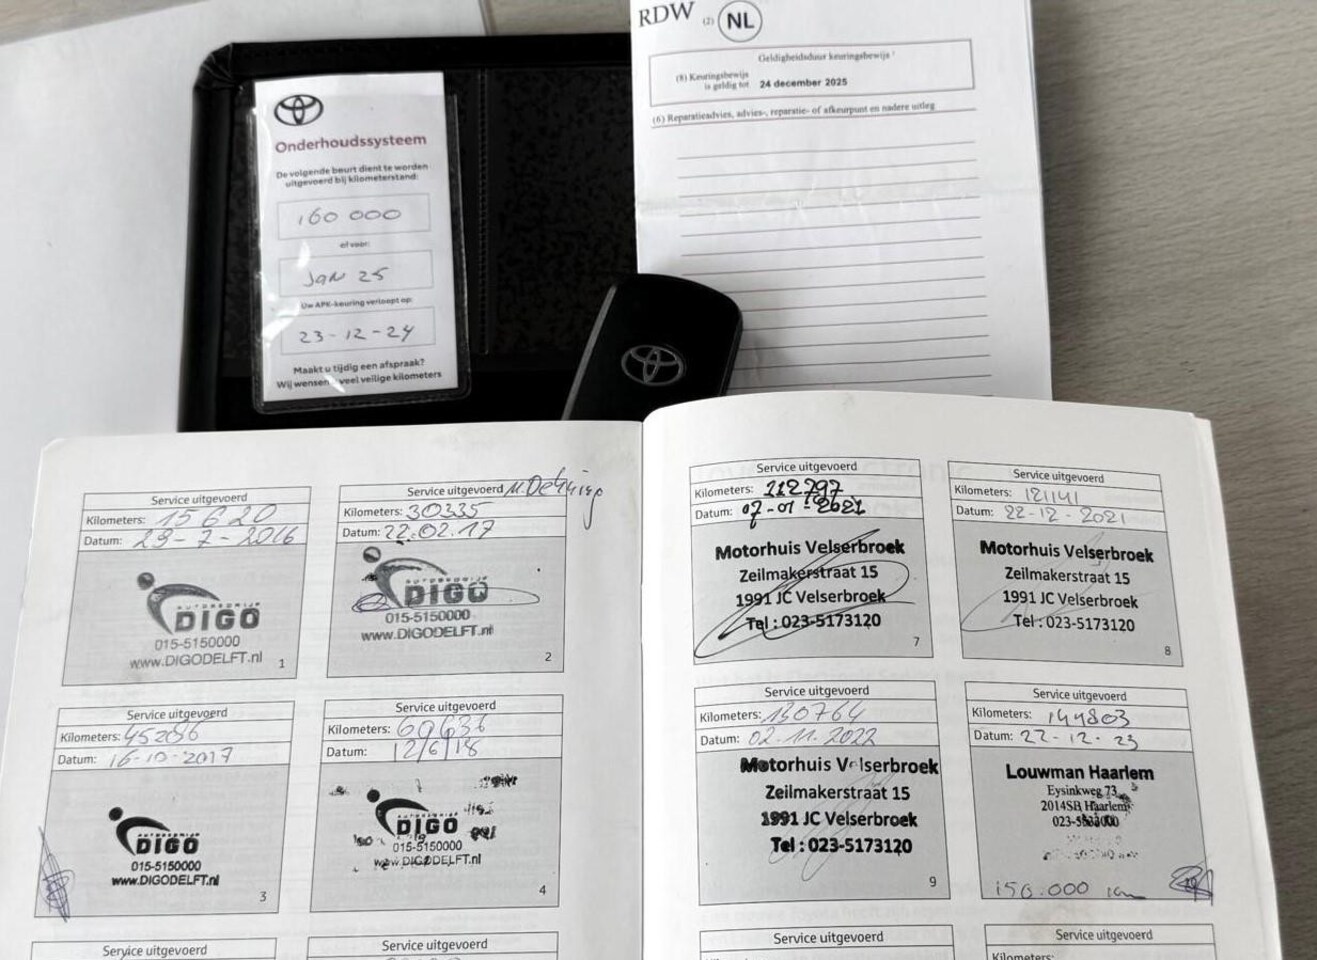 Onderhoudssysteem
De volgende beurt dient te worden
uitgevoerd bij kilometerstand:
160 000
en voor:
Jan 25
Uw APK-keuring verloopt op:
23-12-24
Maakt u tijdig een afspraak?
Wij wensen u veel veilige kilometers
RDW (2) NL
Geldigheidsduur keuringsbewijs
(8) Keuringsbewijs
is geldig tot 24 december 2025
(6) Reparatieadvies, advies-, reparatie- of afkeurpunt en nadere uitleg
Service uitgevoerd
Kilometers: 15620
Datum: 29-7-2016
AUTOBEDRIJF
DIGO
015-5150000
www.DIGODELFT.nl
1
Service uitgevoerd
Kilometers: 30335
Datum: 22.02.17
AUTOBEDRIJF
DIGO
015-5150000
www.DIGODELFT.nl
2
Service uitgevoerd
Kilometers: 45286
Datum: 16-10-2017
AUTOBEDRIJF
DIGO
015-5150000
www.DIGODELFT.nl
3
Service uitgevoerd
Kilometers: 60636
Datum: 12/6/18
DIGO
015-5150000
www.DIGODELFT.nl
4
Service uitgevoerd
Service uitgevoerd
Service uitgevoerd
Kilometers: 112797
Datum: 07-01-2021
Motorhuis Velserbroek
Zeilmakerstraat 15
1991 JC Velserbroek
Tel : 023-5173120
7
Service uitgevoerd
Kilometers: 121141
Datum: 22-12-2021
Motorhuis Velserbroek
Zeilmakerstraat 15
1991 JC Velserbroek
Tel : 023-5173120
8
Service uitgevoerd
Kilometers: 130764
Datum: 02.11.2022
Motorhuis Velserbroek
Zeilmakerstraat 15
1991 JC Velserbroek
Tel : 023-5173120
9
Service uitgevoerd
Kilometers: 144803
Datum: 22-12-23
Louwman Haarlem
Eysinkweg 73
2014SB Haarlem
150.000 km
Service uitgevoerd
Service uitgevoerd
Kilometers: